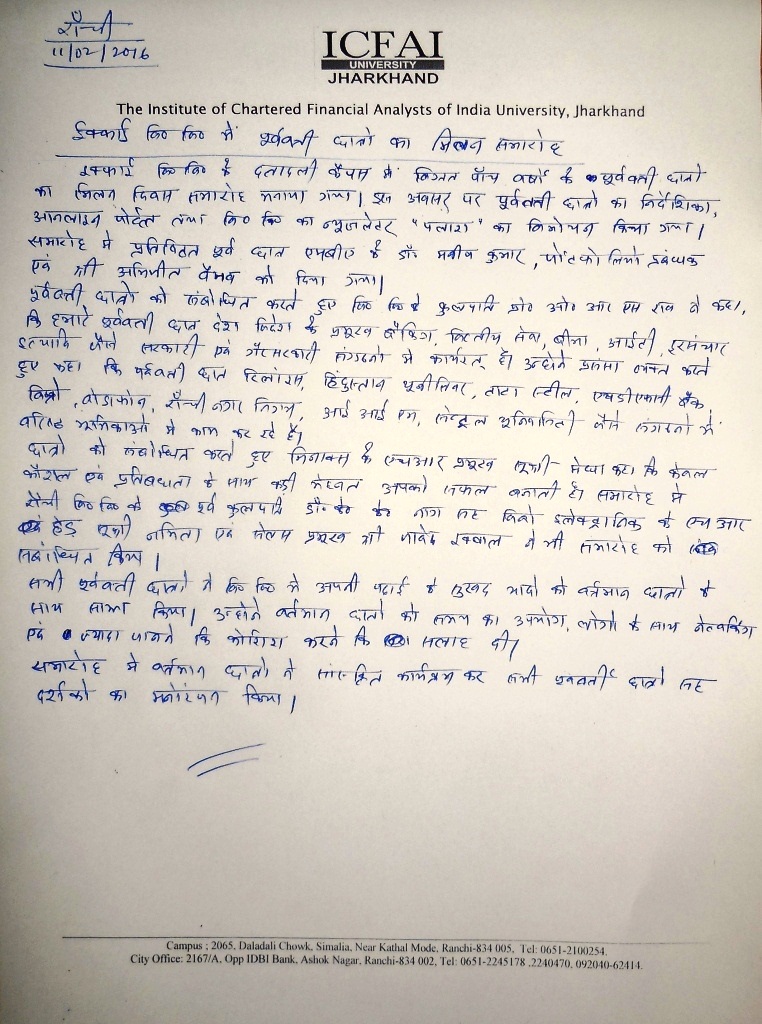 राँची
11/02/2016
ICFAI
UNIVERSITY
JHARKHAND
The Institute of Chartered Financial Analysts of India University, Jharkhand
इक्फाई वि० वि० में पूर्ववर्ती छात्रों का मिलन समारोह
इक्फाई वि० वि० के दलादली कैंपस में विगत पाँच वर्षों के पूर्ववर्ती छात्रों
का मिलन दिवस समारोह मनाया गया। इस अवसर पर पूर्ववर्ती छात्रों का निर्देशिका,
आनलाइन पोर्टल तथा वि० वि० का न्यूजलेटर "पलाश" का विमोचन किया गया।
समारोह में प्रतिष्ठित पूर्व छात्र एमबीए के डॉ० मनीष कुमार, प्रबंधक
एवं श्री अभिजीत वैभव को दिया गया।
पूर्ववर्ती छात्रों को संबोधित करते हुए वि० वि० के कुलपति प्रो० ओ० आर एस राव ने कहा,
कि हमारे पूर्ववर्ती छात्र देश विदेश के प्रमुख बैंकिंग, वित्तीय सेवा, बीमा, आईटी, दूरसंचार
इत्यादि जैसे सरकारी एवं गैरसरकारी संगठनों में कार्यरत् हैं। उन्होंने प्रसन्नता व्यक्त करते
हुए कहा कि पूर्ववर्ती छात्र रिलायंस, हिंदुस्तान यूनीलिवर, टाटा स्टील, एचडीएफसी बैंक,
विप्रो, वोडाफोन, राँची नगर निगम, आई आई एम, सेन्ट्रल यूनिवर्सिटी जैसे संगठनों में
वरिष्ठ भूमिकाओं में काम कर रहे हैं।
छात्रों को संबोधित करते हुए के एचआर प्रमुख सुश्री मेघा कहा कि केवल
कौशल एवं प्रतिबद्धता के साथ कड़ी मेहनत आपको सफल बनाती है। समारोह में
राँची वि० वि० के पूर्व कुलपति डॉ० के० के० नाग सह इलेक्ट्रानिक के एच आर
हेड सुश्री नमिता एवं सेल्स प्रमुख श्री जावेद इकबाल ने भी समारोह को
संबोधित किया।
सभी पूर्ववर्ती छात्रों ने वि० वि० में अपनी पढ़ाई के सुखद यादों को वर्तमान छात्रों के
साथ साझा किया। उन्होंने वर्तमान छात्रों को समय का उपयोग, लोगों के साथ नेटवर्किंग
एवं ज्यादा जानने कि कोशिश करने कि सलाह दी।
समारोह में वर्तमान छात्रों ने सांस्कृतिक कार्यक्रम कर सभी पूर्ववर्ती छात्रों सह
दर्शकों का मनोरंजन किया।
Campus : 2065, Daladali Chowk, Simalia, Near Kathal Mode, Ranchi-834 005, Tel: 0651-2100254.
City Office: 2167/A, Opp IDBI Bank, Ashok Nagar, Ranchi-834 002, Tel: 0651-2245178 ,2240470, 092040-62414.